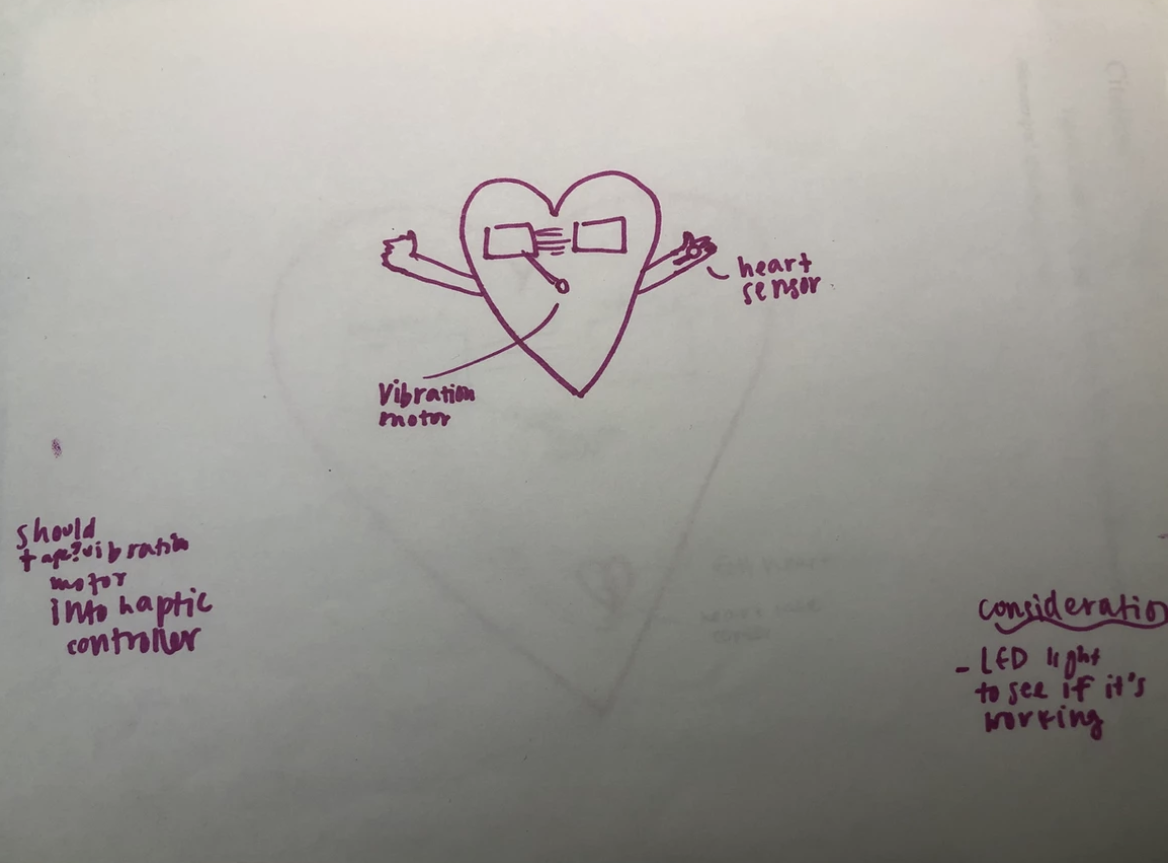 heart
sensor
Vibration
motor
should
tape? vibration
motor
into haptic
controller
consideration
- LED light
to see if it's
working